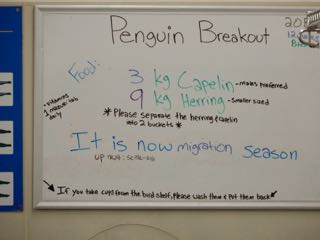 Penguin Breakout
Food:
3 kg Capelin - males preferred
9 kg Herring - smaller sized
• Vitamins
1 mazuri tab
daily
* Please separate the herring & capelin
into 2 buckets *
It is now migration season
up next:
If you take cups from the bird shelf, Please wash them & put them back